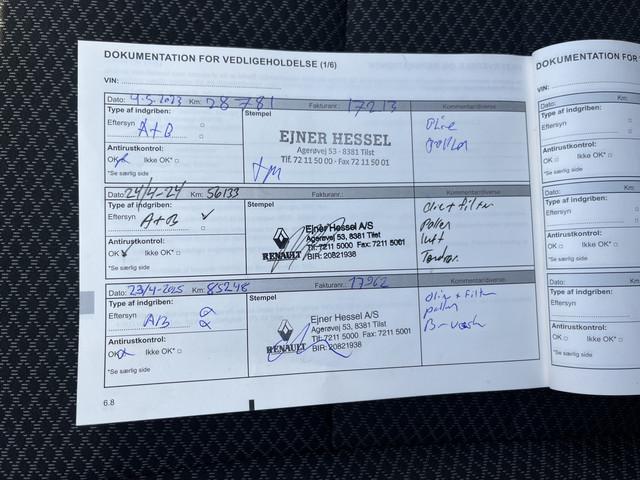 DOKUMENTATION FOR VEDLIGEHOLDELSE (1/6)
VIN:
Dato: 4-5-2023 Km: 28781 Fakturanr.: 17213 Kommentar/diverse
Type af indgriben:
Eftersyn A+B
Antirustkontrol:
OK Ikke OK*
*Se særlig side
Stempel
EJNER HESSEL
Agerøvej 53 - 8381 Tilst
Tlf. 72 11 50 00 - Fax 72 11 50 01
Olie
pollen
Dato: 24/4-24 Km: 56133 Fakturanr.: Kommentar/diverse
Type af indgriben:
Eftersyn A+B
Antirustkontrol:
OK Ikke OK*
*Se særlig side
Stempel
RENAULT
Ejner Hessel A/S
Agerøvej 53, 8381 Tilst
Tlf: 7211 5000 Fax: 7211 5001
BIR: 20821938
Olie + filter
Pollen
luft
Tændrør
Dato: 23/4-2025 Km: 85248 Fakturanr.: 17962 Kommentar/diverse
Type af indgriben:
Eftersyn A/B
Antirustkontrol:
OK Ikke OK*
*Se særlig side
Stempel
RENAULT
Ejner Hessel A/S
Agerøvej 53, 8381 Tilst
Tlf: 7211 5000 Fax: 7211 5001
BIR: 20821938
Olie + Filter
pollen
B-væsk
6.8
DOKUMENTATION FOR
VIN:
Dato: Km:
Type af indgriben:
Eftersyn
Antirustkontrol:
OK Ikke OK*
*Se særlig side
Dato: Km:
Type af indgriben:
Eftersyn
Antirustkontrol:
OK Ikke OK*
*Se særlig side
Dato: Km:
Type af indgriben:
Eftersyn
Antirustkontrol:
OK Ikke OK*
*Se særlig side